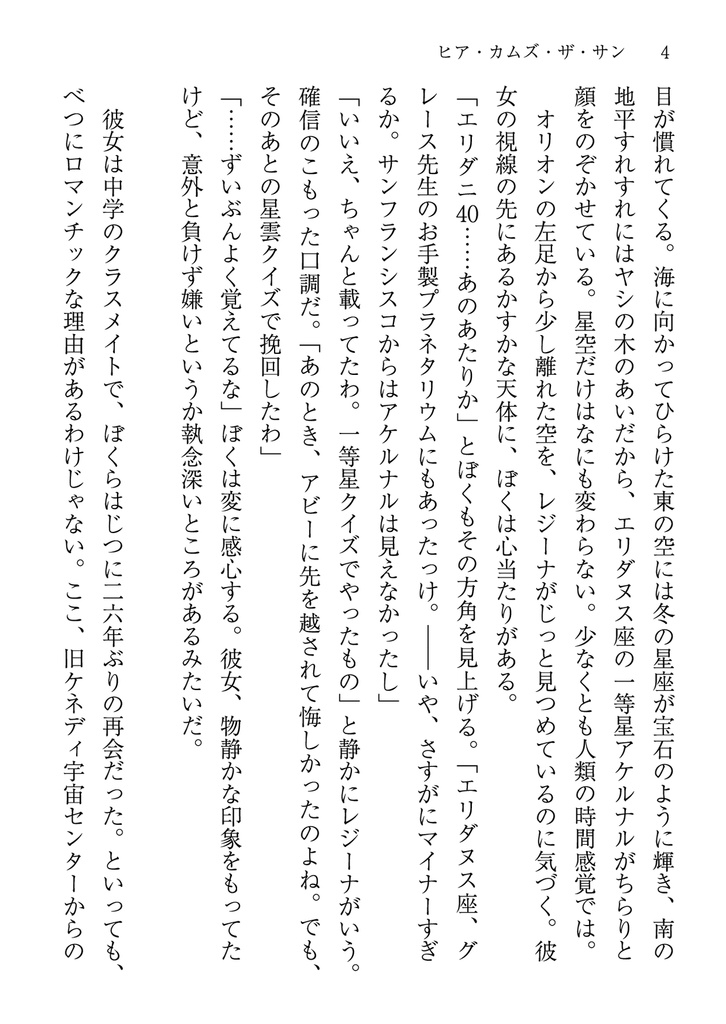 ヒア・カムズ・ザ・サン　4
目が慣れてくる。海に向かってひらけた東の空には冬の星座が宝石のように輝き、南の
地平すれすれにはヤシの木のあいだから、エリダヌス座の一等星アケルナルがちらりと
顔をのぞかせている。星空だけはなにも変わらない。少なくとも人類の時間感覚では。
　オリオンの左足から少し離れた空を、レジーナがじっと見つめているのに気づく。彼
女の視線の先にあるかすかな天体に、ぼくは心当たりがある。
「エリダニ40……あのあたりか」とぼくもその方角を見上げる。「エリダヌス座、グ
レース先生のお手製プラネタリウムにもあったっけ。――いや、さすがにマイナーすぎ
るか。サンフランシスコからはアケルナルは見えなかったし」
「いいえ、ちゃんと載ってたわ。一等星クイズでやったもの」と静かにレジーナがいう。
確信のこもった口調だ。「あのとき、アビーに先を越されて悔しかったのよね。でも、
そのあとの星雲クイズで挽回したわ」
「……ずいぶんよく覚えてるな」ぼくは変に感心する。彼女、物静かな印象をもってた
けど、意外と負けず嫌いというか執念深いところがあるみたいだ。
　彼女は中学のクラスメイトで、ぼくらはじつに二六年ぶりの再会だった。といっても、
べつにロマンチックな理由があるわけじゃない。ここ、旧ケネディ宇宙センターからの